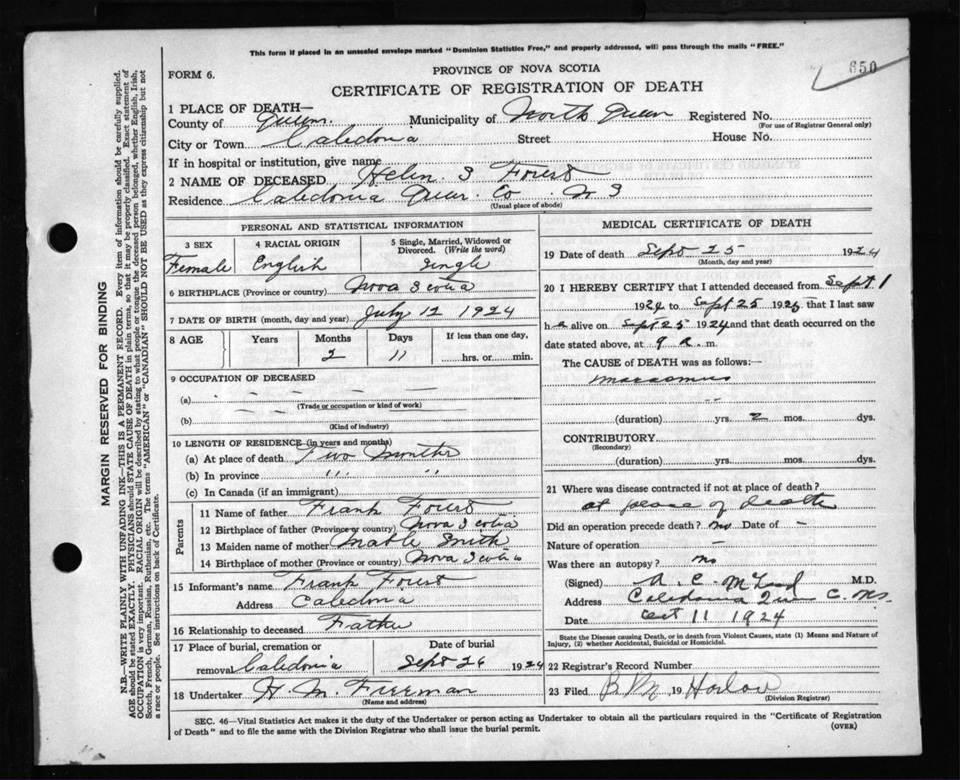 This form if placed in an unsealed envelope marked "Dominion Statistics Free," and properly addressed, will pass through the mails "FREE."
650
FORM 6.
PROVINCE OF NOVA SCOTIA
CERTIFICATE OF REGISTRATION OF DEATH
1 PLACE OF DEATH—
County of Queens. Municipality of North Queen Registered No.
(For use of Registrar General only)
City or Town Caledonia Street House No.
If in hospital or institution, give name
2 NAME OF DECEASED Helen S
Residence Caledonia Queens Co. N S
(Usual place of abode)
PERSONAL AND STATISTICAL INFORMATION
3 SEX 4 RACIAL ORIGIN 5 Single, Married, Widowed or Divorced. (Write the word)
Female English Single
6 BIRTHPLACE (Province or country) Nova Scotia
7 DATE OF BIRTH (month, day and year) July 12 1924
8 AGE Years Months Days If less than one day,
2 11 hrs. or min.
9 OCCUPATION OF DECEASED
(a)
(Trade or occupation or kind of work)
(b)
(Kind of industry)
10 LENGTH OF RESIDENCE (in years and months)
(a) At place of death Two Months
(b) In province " " "
(c) In Canada (if an immigrant)
Parents
11 Name of father Frank
12 Birthplace of father (Province or country) Nova Scotia
13 Maiden name of mother Mable Smith
14 Birthplace of mother (Province or country) Nova Scotia
15 Informant's name Frank
Address Caledonia
16 Relationship to deceased Father
17 Place of burial, cremation or Date of burial
removal Caledonia Sept 26 1924
18 Undertaker H. M. Freeman
(Name and address)
MEDICAL CERTIFICATE OF DEATH
19 Date of death Sept 25 1924
(Month, day and year)
20 I HEREBY CERTIFY that I attended deceased from Sept 1
1924 to Sept 25 192 that I last saw
h alive on Sept 25 1924 and that death occurred on the
date stated above, at 9 a. m.
The CAUSE of DEATH was as follows:—
(duration) yrs. 2 mos. dys.
CONTRIBUTORY
(Secondary)
(duration) yrs. mos. dys.
21 Where was disease contracted if not at place of death?
at place of death
Did an operation precede death? no Date of -
Nature of operation -
Was there an autopsy? no
(Signed) A. C. M.D.
Address Caledonia
Date Oct 11 1924
State the Disease causing Death, or in death from Violent Causes, state (1) Means and Nature of
Injury, (2) whether Accidental, Suicidal or Homicidal.
22 Registrar's Record Number
23 Filed B M 19 Harlow
(Division Registrar)
SEC. 46—Vital Statistics Act makes it the duty of the Undertaker or person acting as Undertaker to obtain all the particulars required in the "Certificate of Registration
of Death" and to file the same with the Division Registrar who shall issue the burial permit. (OVER)
MARGIN RESERVED FOR BINDING
N.B.—WRITE PLAINLY WITH UNFADING INK—THIS IS A PERMANENT RECORD. Every item of information should be carefully supplied.
AGE should be stated EXACTLY. PHYSICIANS should STATE CAUSE OF DEATH in plain terms, so that it may be properly classified. Exact statement of
OCCUPATION is very important. RACIAL ORIGIN will be described by stating to what people or tongue the deceased person belonged, whether English, Irish,
Scotch, French, German, Russian, Ruthenian, etc. The terms "AMERICAN" or "CANADIAN" SHOULD NOT BE USED as they express citizenship but not
a race or people. See instructions on back of Certificate.